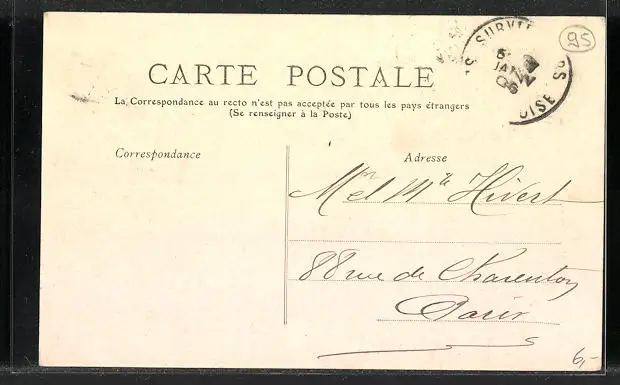 CARTE POSTALE
La Correspondance au recto n'est pas acceptée par tous les pays étrangers
(Se renseigner à la Poste)
Correspondance
Adresse
Mr et Mlle Hivert
88 rue de Charenton
Paris
SURVI
OISE
95
6,-